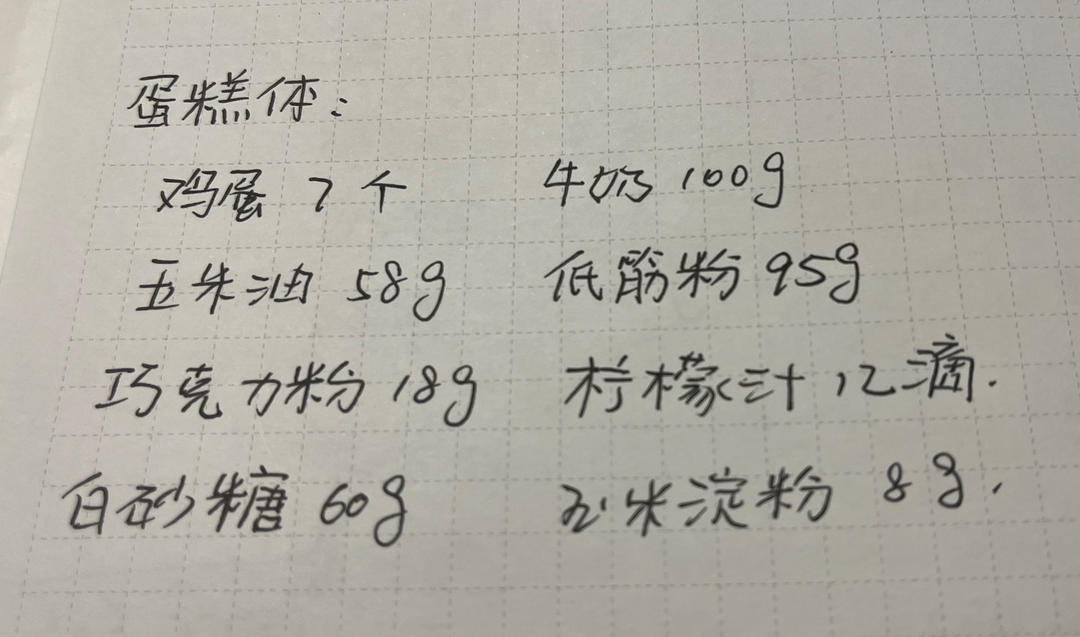 蛋糕体：
鸡蛋 7个 牛奶 100g
玉米油 58g 低筋粉 95g
巧克力粉 18g 柠檬汁 12滴.
白砂糖 60g 玉米淀粉 8g.